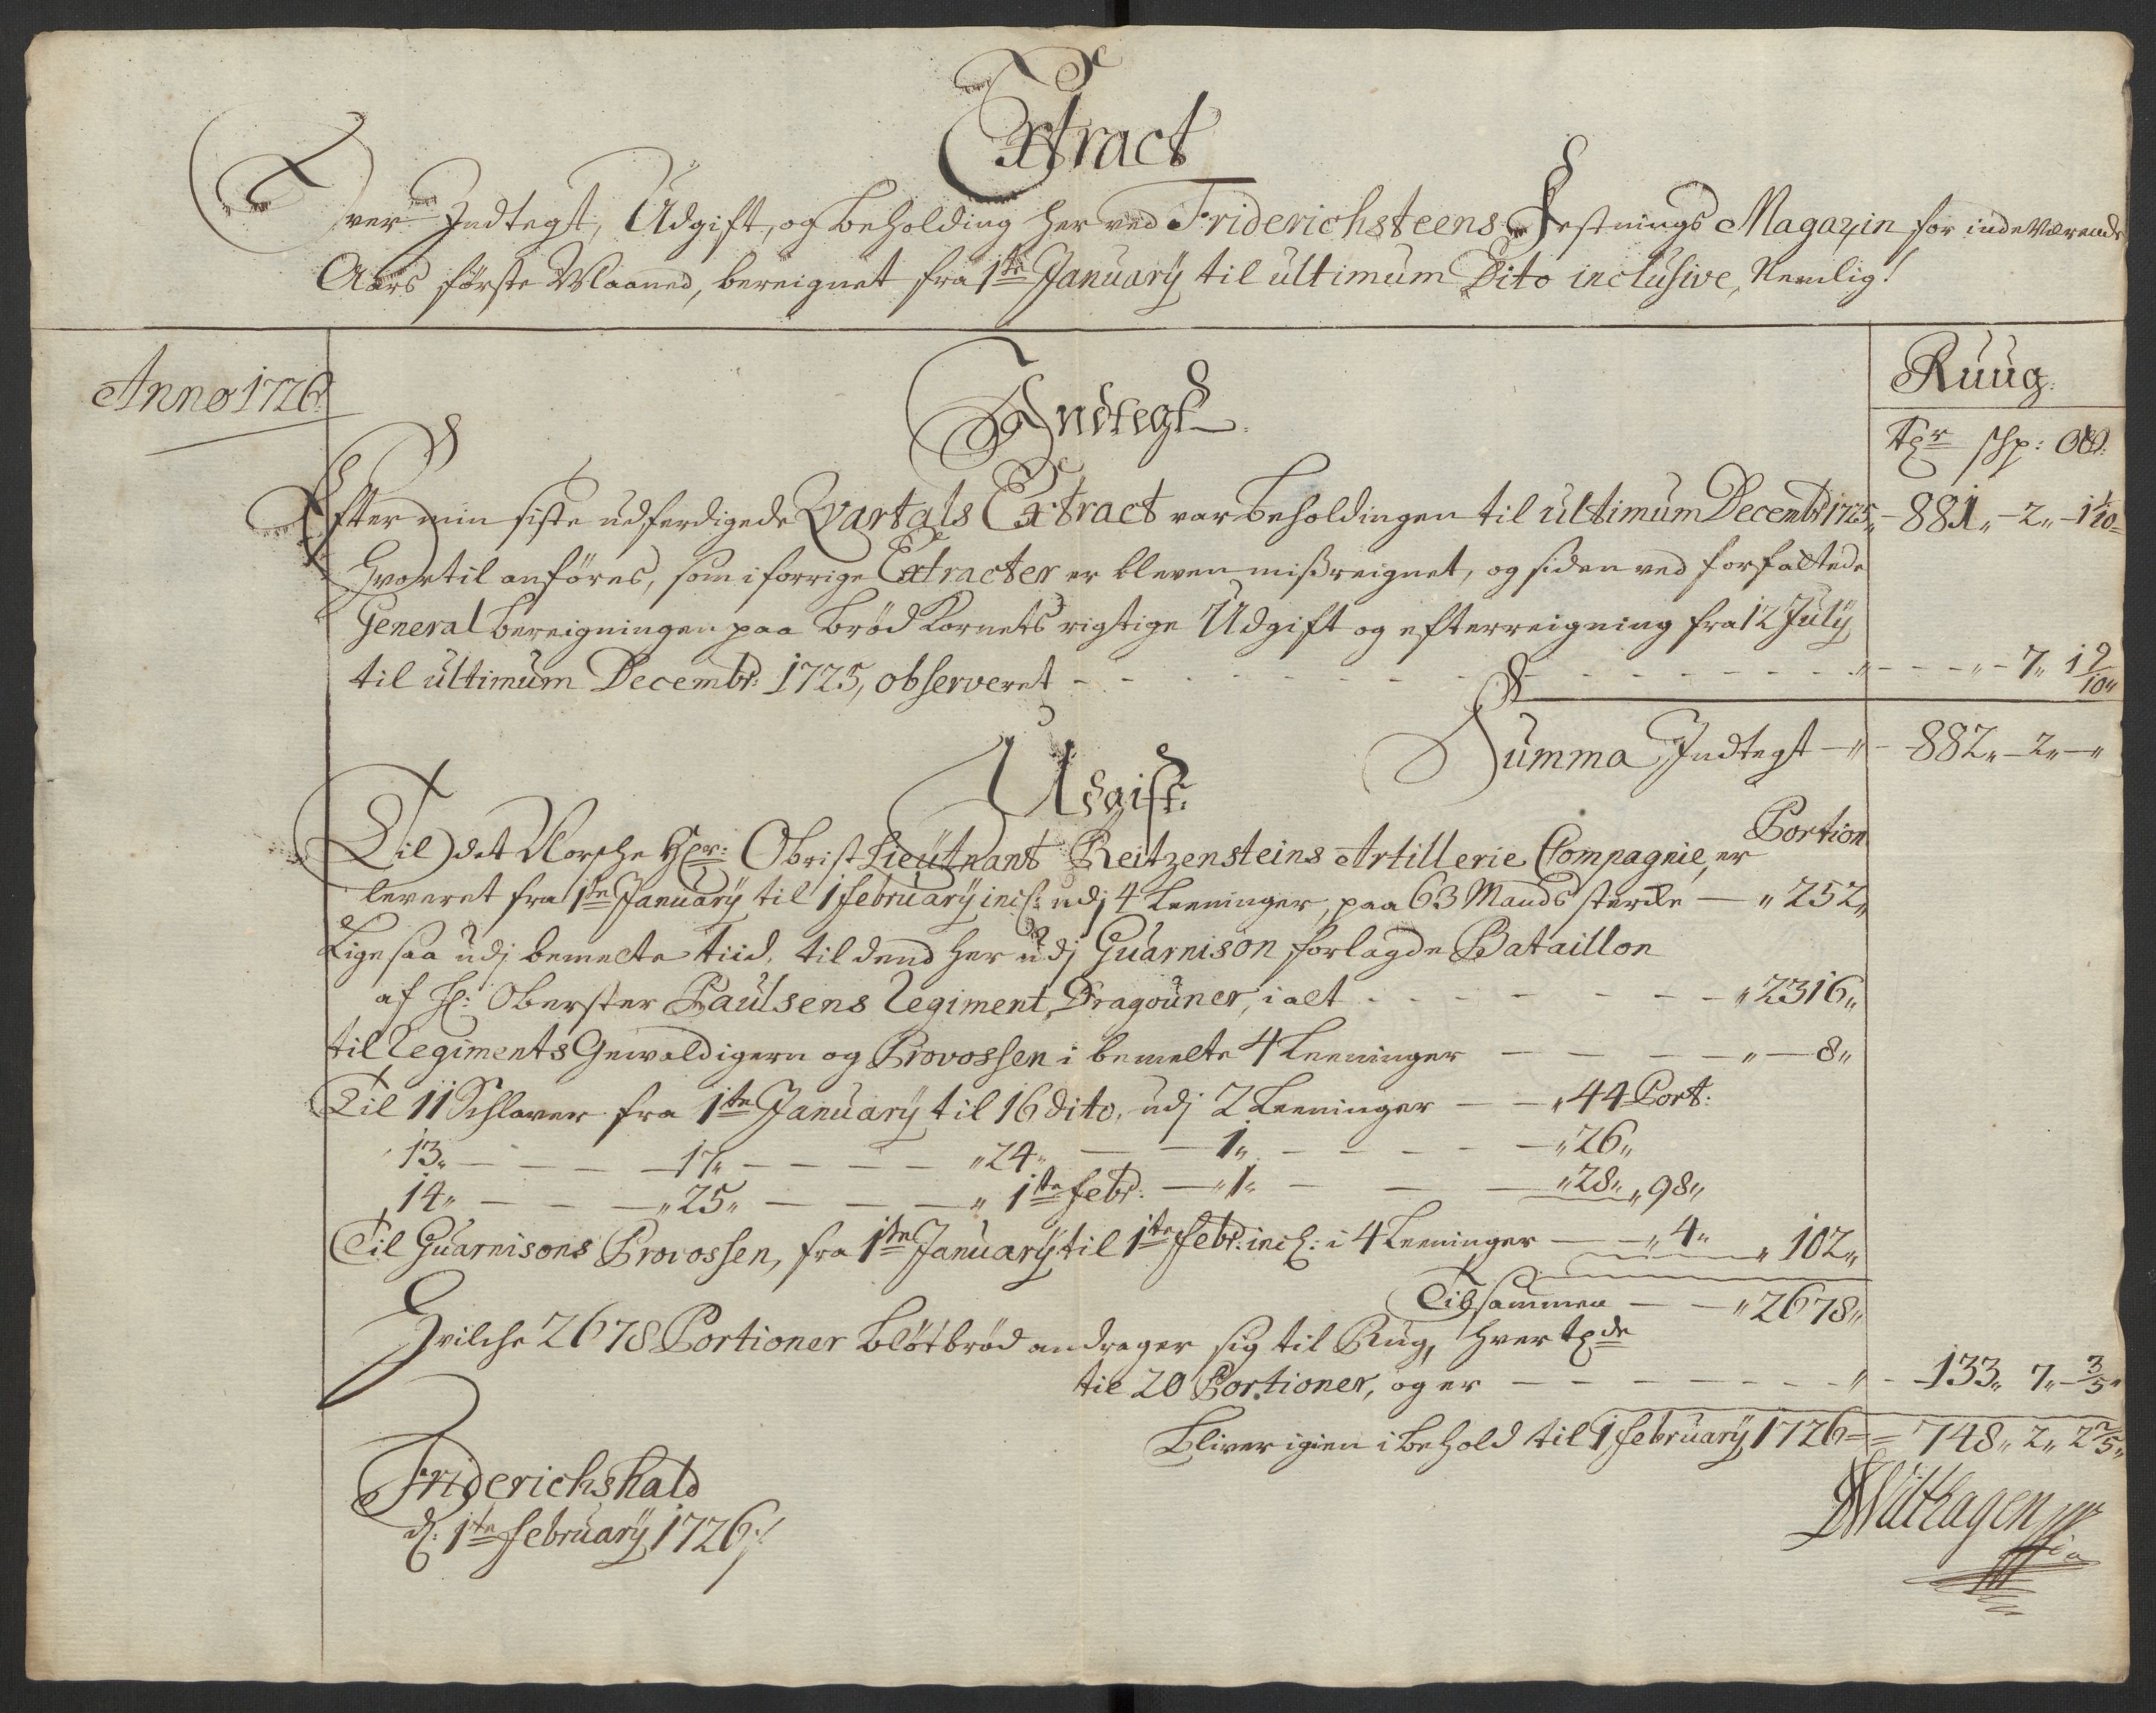 Extract
Over Indtegt, Udgift, og beholding her ved Friderichsteens Festnings Magazin for indeværende
Aars første Maaned, bereignet fra 1te January til ultimum Dito inclusive, Nemlig!
Anno 1726
Ruug:
Indtegt
Tdr schp: Ott:
Efter min siste udferdigede Qvartals Extract var beholdingen til ultimum Decembr 1725 „ - 881 „ - 2 „ - 1 1/10
Hvortil anføres, som i forrige Extracter er bleven misreignet, og siden ved forfattede
General bereigningen paa brød Kornets rigtige Udgift og efterreigning fra 12 July
til ultimum Decembr: 1725, observeret - - - „ - - - „ - 7 „ 1 9/10 „
Summa Indtegt - „ - 882 „ - 2 „ - „
Udgift
Portion
Til det Norsche Hr: Obrist Lieutnant Reitzensteins Artillerie Compagnie, er
leveret fra 1te January til 1 february incl: udj 4 Leeninger, paa 63 Mands sterche - „ 252 „
Lige saa udj bemelte tiid, til dend her udj Guarnison forlagde Bataillon
af Hr: Oberster Paulsens Regiment Dragouner, i alt - - - „ 2316 „
til Regiments Gewaldigern og Provossen i bemelte 4 Leeninger - - - „ - 8 „
Til 11 Schlaver fra 1te January til 16 dito, udj 2 Leeninger - - „ 44 Port:
13 „ - - - - 17 „ - - - - „ 24 „ - - 1 „ - - - - „ 26 „
14 „ - - - „ 25 „ - - - „ 1te febr: - „ 1 „ - - - „ 28 „ „ 98 „
Til Guarnisons Provossen, fra 1te January til 1te febr: incl: i 4 Leeninger - - „ 4 „ „ 102 „
Tilsammen - - „ 2678 „
Hvilche 2678 Portioner bløtbrød andrager sig til Rug, hver tønde
til 20 Portioner, og er - - - - - „ - 133 „ 7 „ - 3/5 „
Bliver igien i behold til 1 february 1726 = = 748 „ 2 „ 2 2/5 „
Friderichshald
d: 1te february 1726 /
Withagen